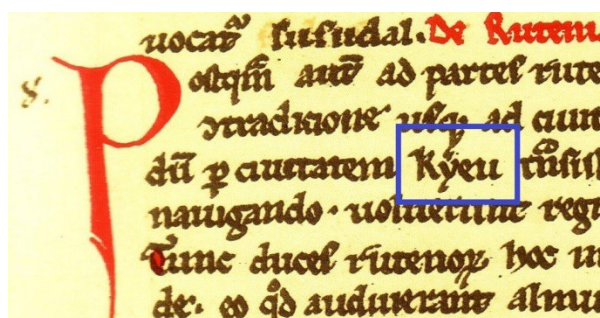 uocat᷑ susudal. De Rutem
Postqm̅ aut̅ ad partes rute
8.
ꝯtradicione usq; ad ciuit
du̅ ꝑ ciuitatem Kyeu
nauigando. uoluerunt reg
Tunc duces rutenoꝝ hoc in
de. eo qd audierant almu